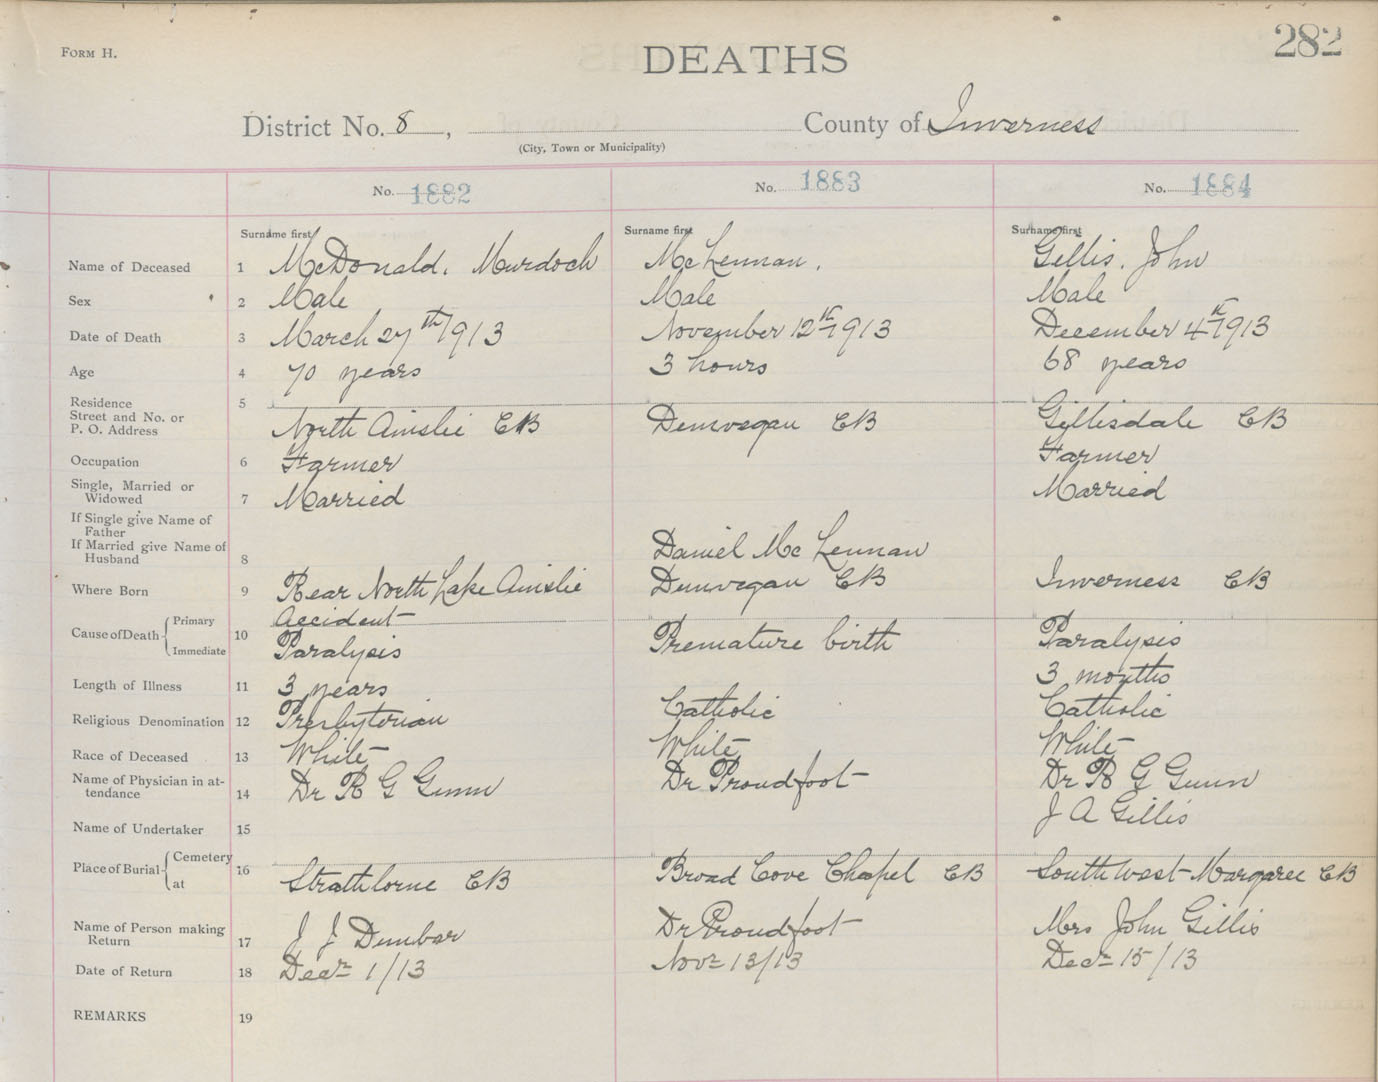 FORM H.
DEATHS
282
District No. 8, County of Inverness
(City, Town or Municipality)
No. 1882 No. 1883 No. 1884
Surname first Surname first Surname first
Name of Deceased 1 McDonald, Murdoch McLennan. Gillis. John
Sex 2 Male Male Male
Date of Death 3 March 27th 1913 November 12th 1913 December 4th 1913
Age 4 70 years 3 hours 68 years
Residence 5
Street and No. or
P. O. Address North Ainslie CB Dunvegan CB Gillisdale CB
Occupation 6 Farmer Farmer
Single, Married or
Widowed 7 Married Married
If Single give Name of
Father
If Married give Name of
Husband 8 Daniel McLennan
Where Born 9 Rear North Lake Ainslie Dunvegan CB Inverness CB
Cause of Death 10
Primary Accident
Immediate Paralysis Premature birth Paralysis
Length of Illness 11 3 years 3 months
Religious Denomination 12 Presbyterian Catholic Catholic
Race of Deceased 13 White White White
Name of Physician in at-
tendance 14 Dr R G Gunn Dr Proudfoot Dr R G Gunn
Name of Undertaker 15 J A Gillis
Place of Burial 16
Cemetery
at Strathlorne CB Broad Cove Chapel CB South West Margaree CB
Name of Person making
Return 17 J J Dunbar Dr Proudfoot Mrs John Gillis
Date of Return 18 Decr 1/13 Novr 13/13 Decr 15/13
REMARKS 19